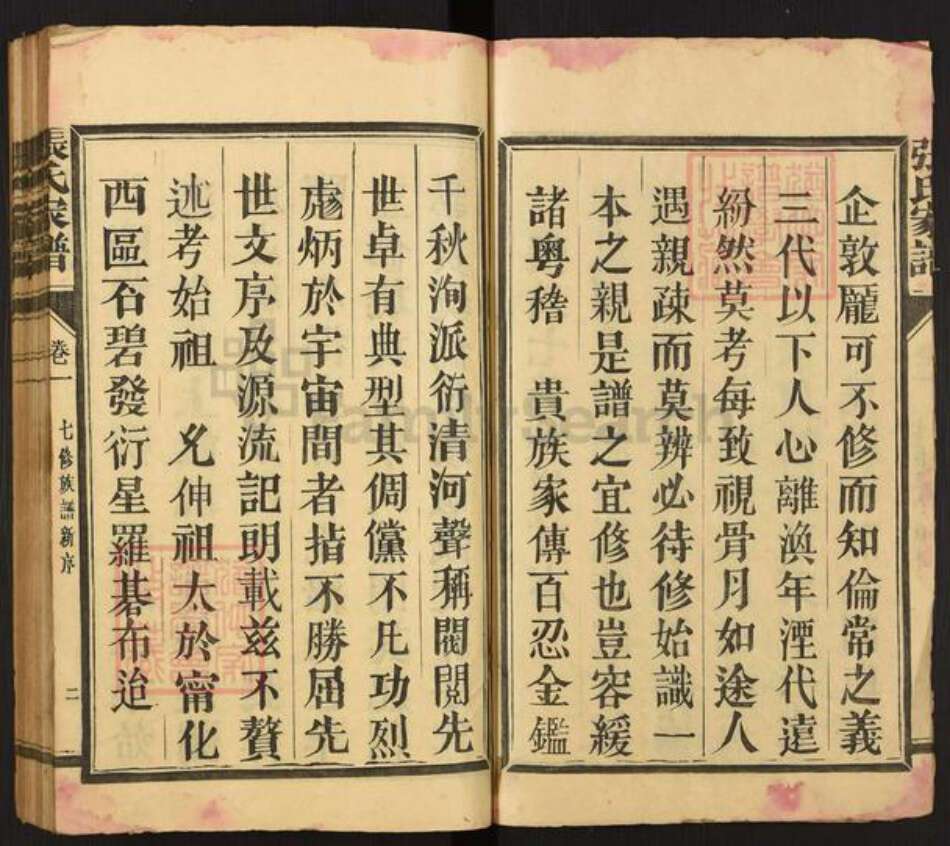 張氏家譜
企敦龐可不修而知倫常之義
三代以下人心離渙年湮代遠
紛然莫考每致視骨月如途人
遇親疎而莫辨必待修始識一
本之親是譜之宜修也豈容緩
諸粵稽 貴族家傳百忍金鑑
千秋洵派衍清河聲稱閥閱先
世卓有典型其倜儻不凡功烈
彪炳於宇宙間者指不勝屈先
世文序及源流記明載兹不贅
述考始祖 允伸祖太於甯化
西區石碧發衍星羅碁布迨
張氏家譜
卷一
七修族譜新序
二
FamilySearch